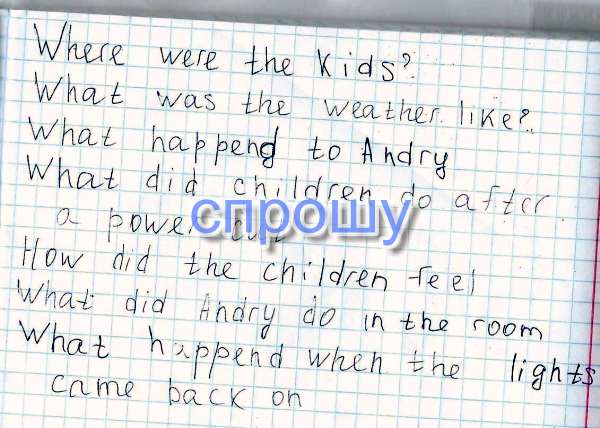 Where were the kids?
What was the weather like?
What happend to Andry
What did children do after
a power cut
спрошу
How did the children feel
What did Andry do in the room
What happend when the lights
came back on